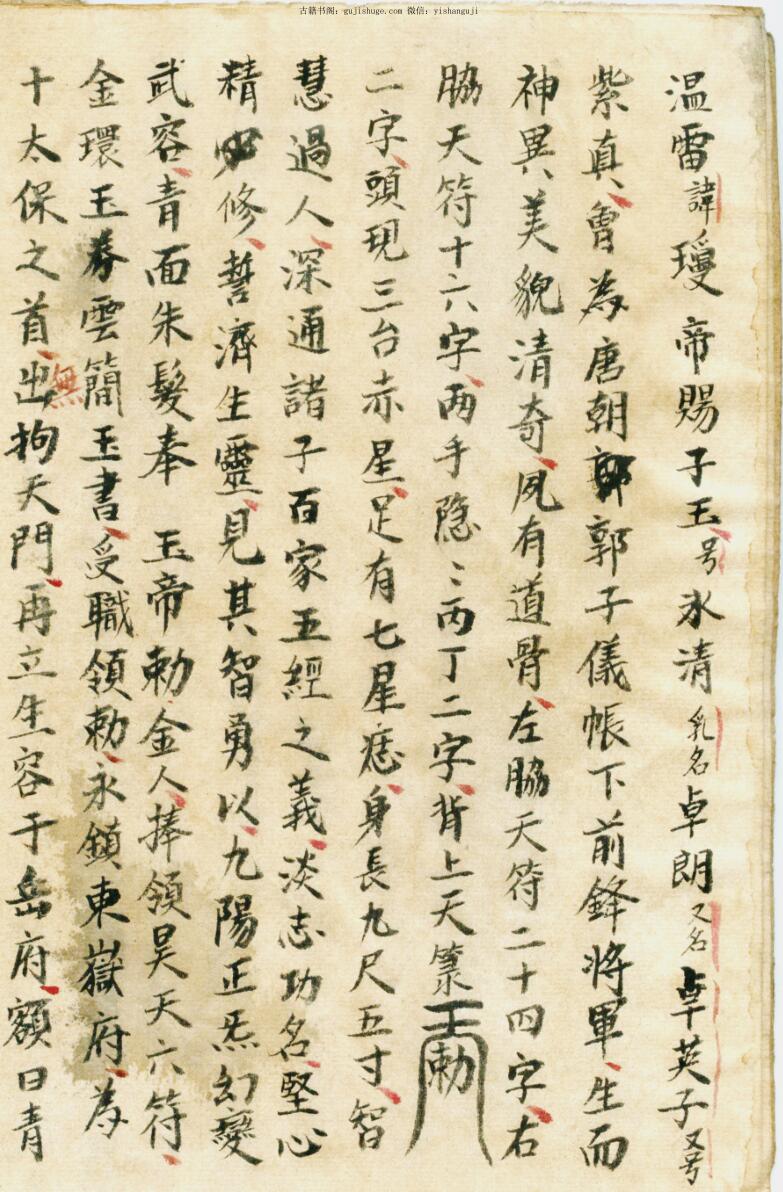 古籍书阁：gujishuge.com 微信：yishanguji
温雷諱瓊帝賜子玉号氷清乳名卓朗又名卓英子又号
紫真曾為唐朝郭子儀帳下前鋒将軍生而
神異美貌清奇夙有道骨左脇天符二十四字右
脇天符十六字两手隐〻丙丁二字背上天篆玉勅
二字頭現三台赤星足有七星痣身長九尺五寸智
慧過人深通諸子百家五經之義淡志功名堅心
精修誓濟生靈見其智勇以九陽正炁幻變
武容青面朱髮奉玉帝勅金人捧領昊天六符
金環玉券雲簡玉書受職領勅永鎮東嶽府為
十太保之首出無拘天門再立生容于岳府額曰青